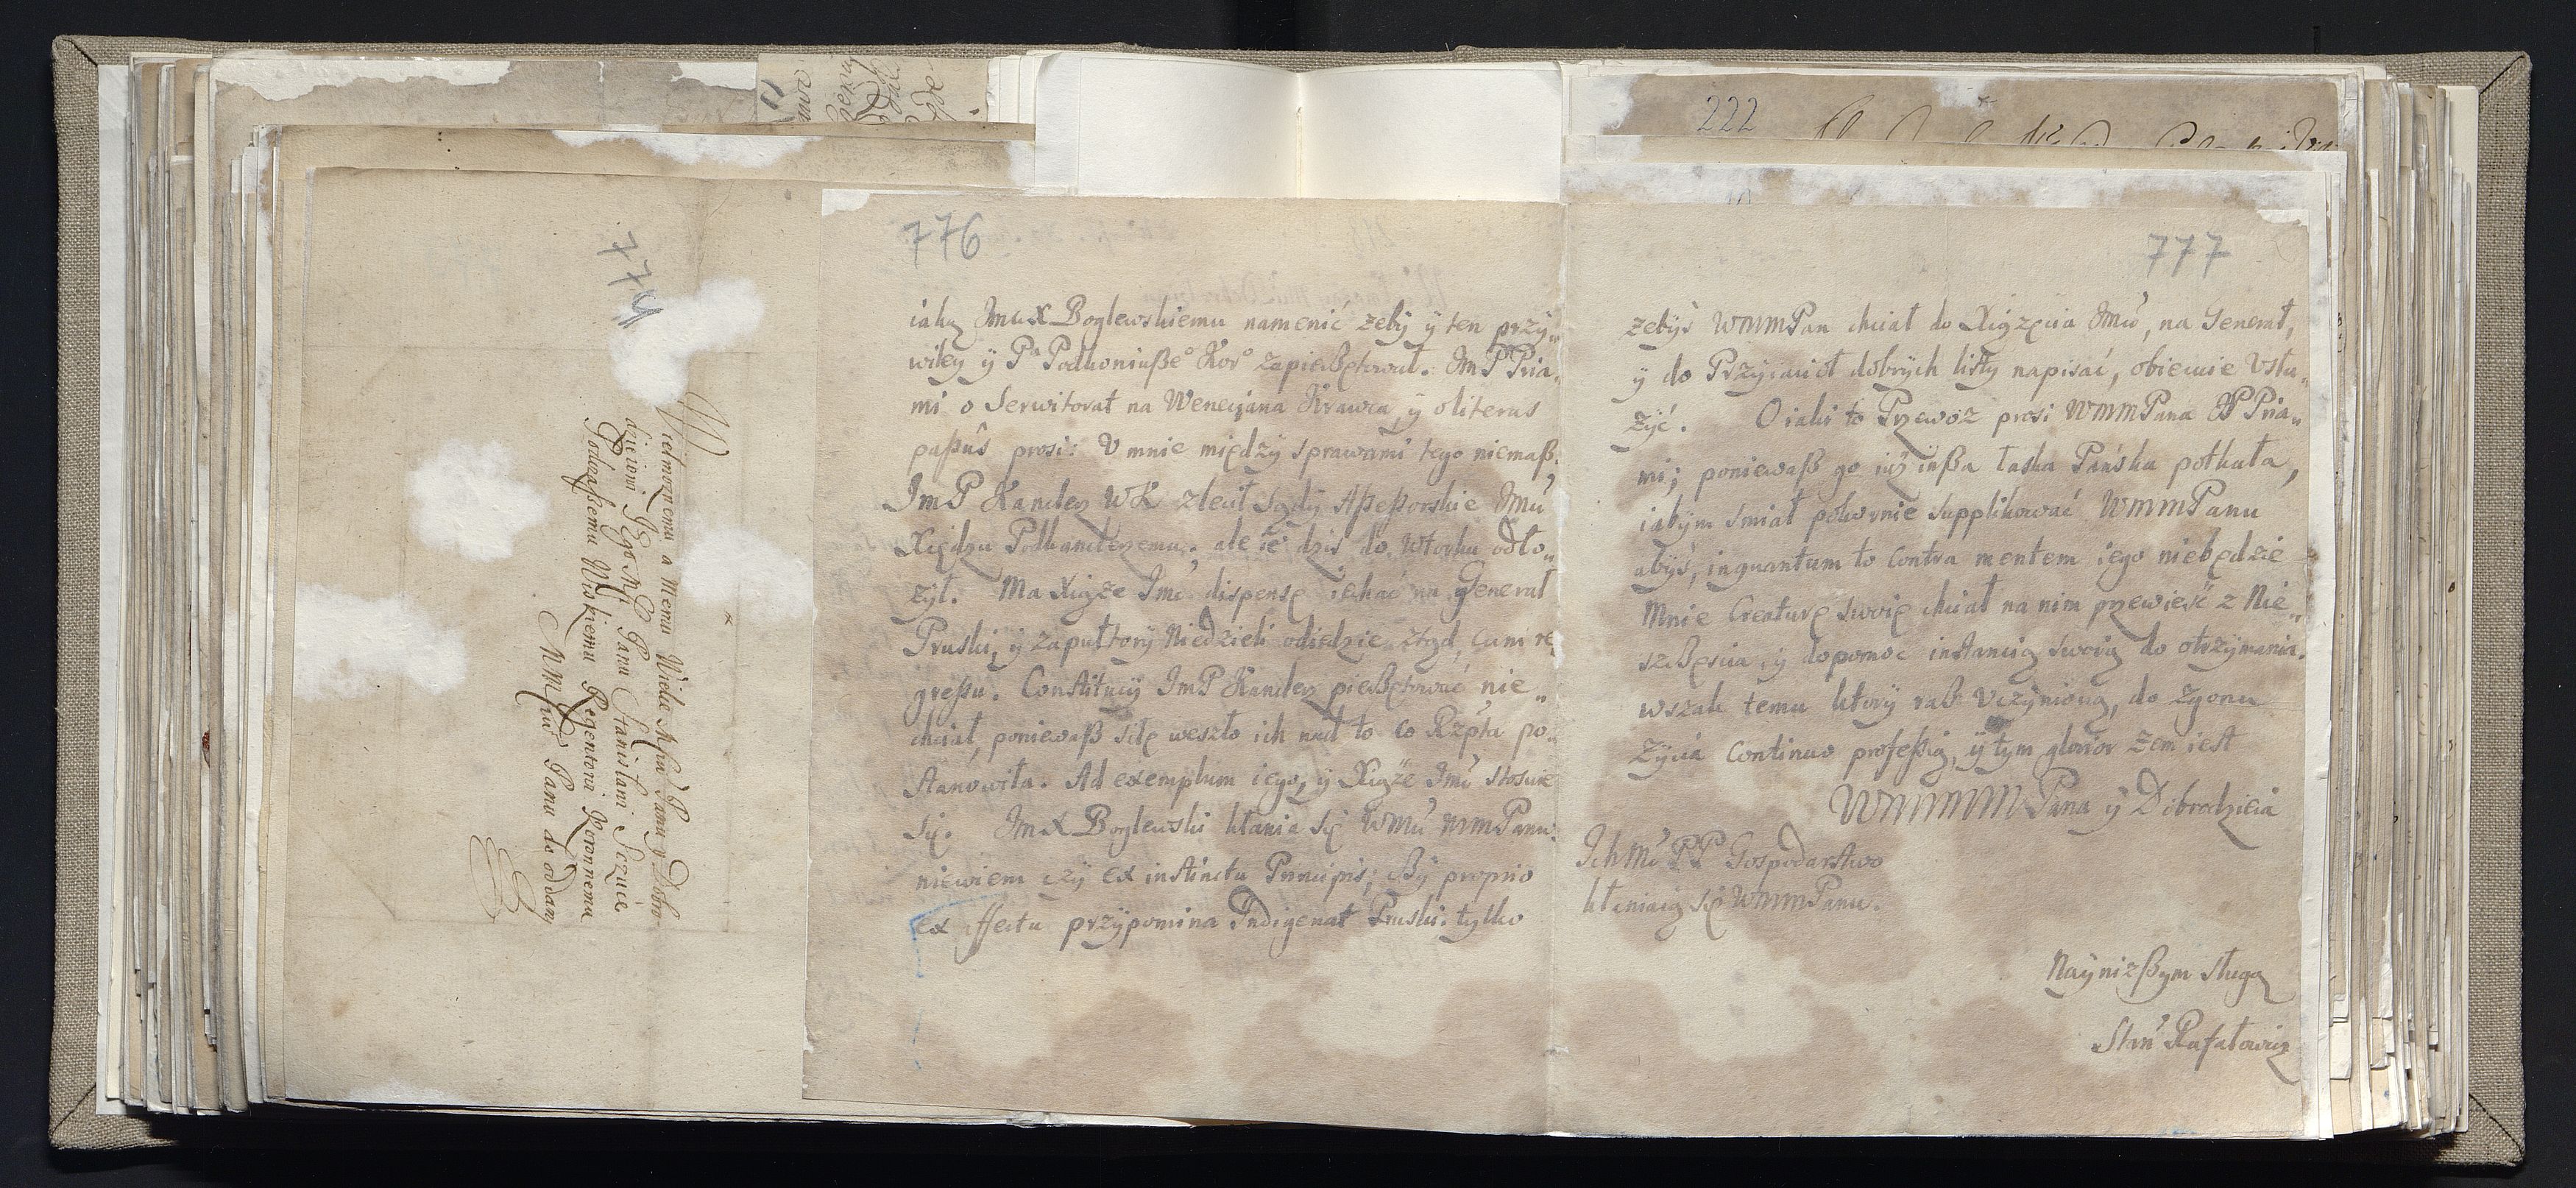 775
Wielmoznemu a Memu Wielce Mśću Panu y Dobro-
dzieiowi Jego Mśc Panu Stanisławi Szczuce
Podczaßemu Wiskiemu Regentowi Koronnemu
MMPanu do oddani
776
iako Imu X Boglewskiemu namenić zeby ÿ ten przÿ„
wiley ÿ Pa Podkoniußeo Koro zapießętował. ImP Pria„
mi o Serwitorat na Wenecijana Krawca, ÿ o literas
paßus prosi: V mnie międzÿ sprawami tego niemaß.
ImP Kanclerz WK zlecił Sądÿ Aßeßorskie Imu
Xiędzu Podkanclerzemu, ale ie dzis do wtorku odło„
zył. Ma Xiąze Imć dispensę iechać na Generał
Pruski, ÿ za pułtorÿ Niedzieli odiedzie ztąd, cum re
greßu. Constitucÿ ImP Kanclerz pießętować nie„
chciał, poniewaß siłę weszło ich nad to co Rzpta po„
stanowiła. Ad exemplum iego, ÿ Xiąze Imć stosuie
się. Im X Boglewski kłania się WMu MMPanu.
niewiem czÿ ex instinctu Principis; czÿ proprio
ex affectu przÿpomina Indigenat Pruski: tylko
222
777
zebÿs WMMPan chciał do Xiązęcia Imć, na Generał,
ÿ do Przÿiacioł dobrÿch listÿ napisać, obiecuie vsłu„
zÿć. O iakis to Przewoz prosi WMMPana JP Pria„
mi; poniewaß go iuz inßa łaska Pańska potkała,
iabÿm smiał pokornie supplikować WMMPanu
abÿs, inquantum to contra mentem iego niebędzie
Mnie Creaturę swoię chciał na nim przewieść z Nie„
szczęscia, ÿ dopomoc instancią swoią do otrzÿmania.
wszak temu ktorÿ raß vczÿnioną, do zgonu
Zÿcia continuo profeßią, ÿ tym glorior zem iest
WMMMM Pana ÿ Dobrodzieia
Ich Mć PP Gospodarstwo
kłaniaią się WMMPanu.
Naÿnizßym sługą
Stan Rafałowicz